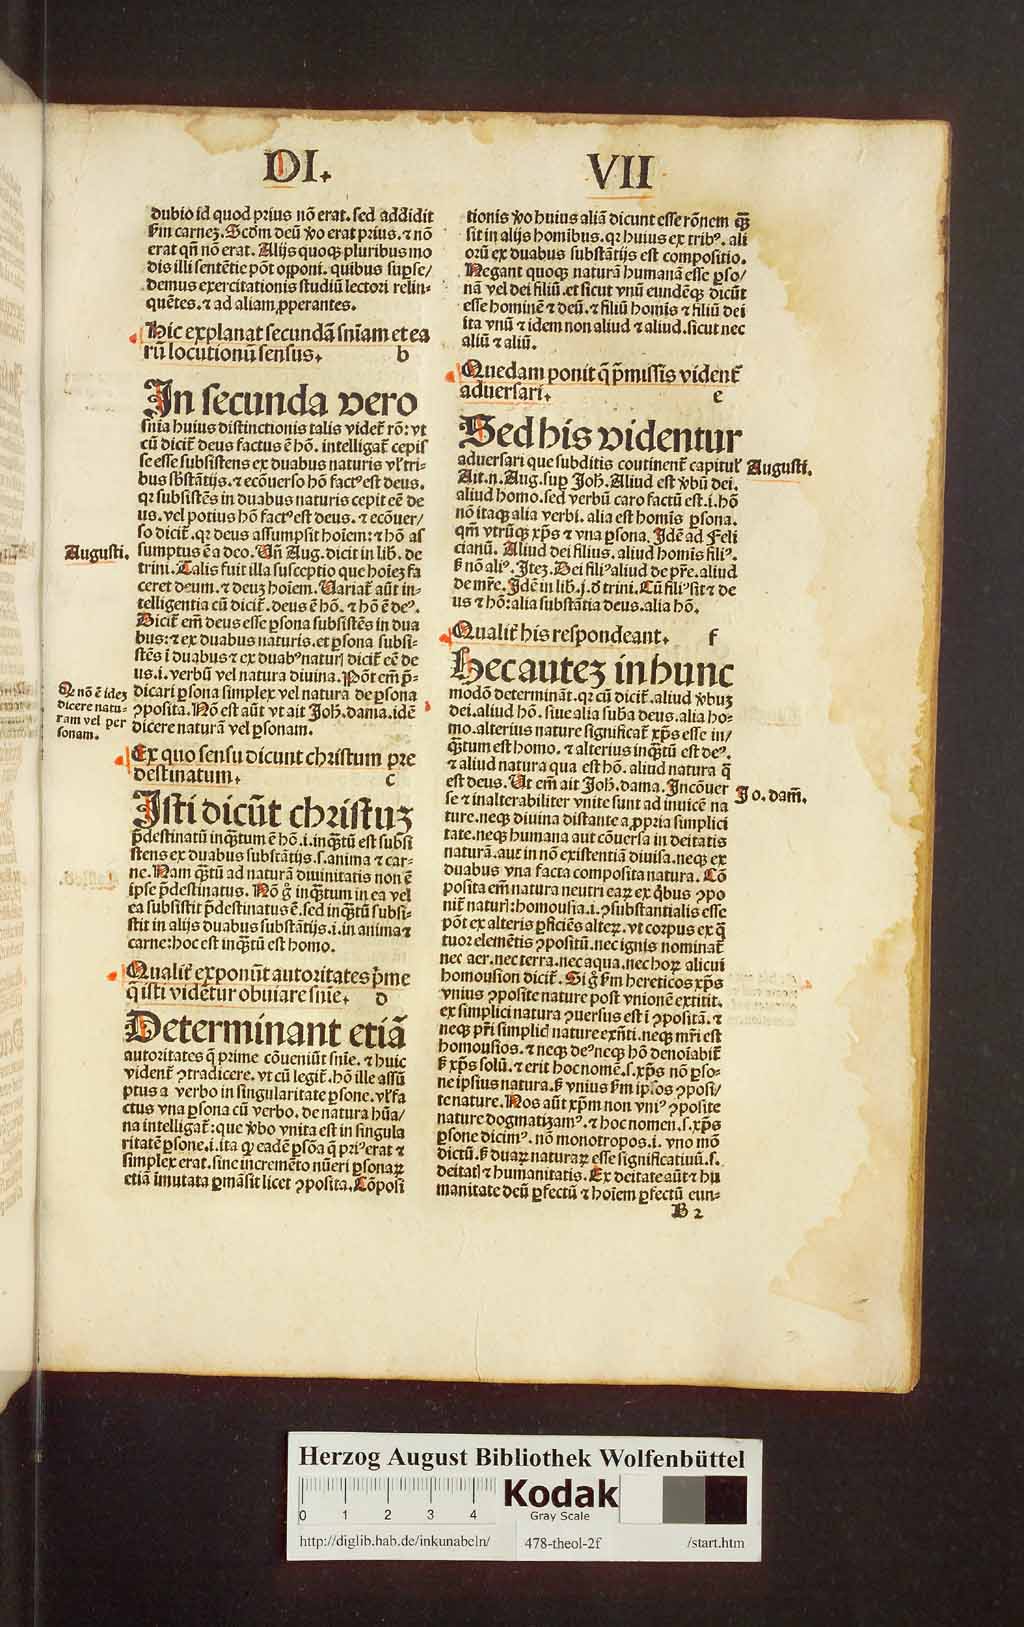 DI.
VII
dubio id quod prius nõ erat. sed addidit
ẜm carnez. Scďm deũ ꝟo erat prius. ⁊ nõ
erat qñ nõ erat. Alijs quoqꝫ pluribus mo
dis illi sentẽtie põt opponi. quibus suꝑse/
demus exercitationis studiũ lectori relin⸗
quẽtes. ⁊ ad aliam ꝓperantes.
Hic explanat secundã sniam et ea
rũ locutionũ sensus. b
In secunda vero
snia huius distinctionis talis videt̃ rõ: vt
cũ dicit̃ deus factus ẽ hõ. intelligat̃ cepis
se esse subsistens ex duabus naturis vl̛ tri⸗
bus sb̃stãtijs. ⁊ ecõuerso hõ factꝰ est deus.
qꝛ subsistẽs in duabus naturis cepit eẽ de
us. vel potius hõ factꝰ est deus. ⁊ ecõuer/
so dicit̃. qꝛ deus assumpsit hoiem: ⁊ hõ as
Augusti.
sumptus ẽ a deo. Uñ Aug. dicit in lib. de
trini. Talis fuit illa susceptio que hoiez fa
ceret deum. ⁊ deuz hoiem. Uariat̃ aũt in⸗
telligentia cũ dicit̃. deus ẽ hõ. ⁊ hõ ẽ deꝰ.
Dicit̃ em̃ deus esse ꝑsona subsistẽs in dua
bus: ⁊ ex duabus naturis. et ꝑsona subsi⸗
stẽs ĩ duabus ⁊ ex duabꝰ naturꝭ dicit̃ eẽ de
us. i. verbũ vel natura diuina. Põt em̃ p̃⸗
Q nõ ẽ idez
dicere natu⸗
ram vel per
sonam.
dicari ꝑsona simplex vel natura de ꝑsona
ꝯposita. Nõ est aũt vt ait Joh. dama. idẽ
dicere naturã vel ꝑsonam.
Ex quo sensu dicunt christum pre
destinatum. c
Isti dicũt christuz
p̃destinatũ inq̃ꝫtum ẽ hõ. i. inq̃ꝫtũ est subsi
stens ex duabus substãtijs. s. anima ⁊ car⸗
ne. Nam q̃ꝫtũ ad naturã diuinitatis non ẽ
ipse p̃destinatus. Nõ g̊ inq̃ꝫtum in ea vel
ea subsistit p̃destinatus ẽ. sed inq̃ꝫtũ subsi⸗
stit in alijs duabus substãtijs. i. in anima ⁊
carne: hoc est inq̃ꝫtũ est homo.
Qualit̃ exponũt autoritates p̃me
q̃ isti videtur obuiare snie. d
Determinant etiã
autoritates q̃ prime cõueniũt snie. ⁊ huic
vident̃ ꝯtradicere. vt cũ legit̃. hõ ille assũ
ptus a verbo in singularitate ꝑsone. vl̛ fa
ctus vna ꝑsona cũ verbo. de natura hũa/
na intelligat̃: que ꝟbo vnita est in singula
ritate ꝑsone. i. ita ꝙ eadẽ ꝑsõa q̃ priꝰ erat ⁊
simplex erat. sine incremẽto nũeri ꝑsonaꝝ
etiã ĩmutata ꝑmãsit licet ꝯposita. Cõposi
tionis ꝟo huius aliã dicunt esse rõnem q̃ꝫ
sit in alijs homibus. qꝛ huius ex tribꝰ. ali
orũ ex duabus substãtijs est compositio.
Negant quoqꝫ naturã humanã esse ꝑso/
nã vel dei filiũ. et sicut vnũ eundẽqꝫ dicũt
esse hominẽ ⁊ deũ. ⁊ filiũ homis ⁊ filiũ dei
ita vnũ ⁊ idem non aliud ⁊ aliud. sicut nec
aliũ ⁊ aliũ.
Quedam ponit q̃ p̃missis vident̃
aduersari. e
Sed his videntur
aduersari que subditis coutinent̃ capitul̛ Augusti.
Ait. n. Aug. suꝑ Joh. Aliud est ꝟbũ dei.
aliud homo. sed verbũ caro factũ est. i. hõ
nõ itaqꝫ alia verbi. alia est homis ꝑsona.
qm̃ vtrũqꝫ xp̃s ⁊ vna ꝑsona. Idẽ ad Feli
cianũ. Aliud dei filius. aliud homis filiꝰ.
ẜ nõ aliꝰ. Itez. Dei filiꝰ aliud de pr̃e. aliud
de mr̃e. Idẽ in lib. j. ð trini. Cũ filiꝰ sit ⁊ de
us ⁊ hõ: alia substãtia deus. alia hõ.
Qualit̃ his respondeant. f
Hec autez in hunc
modõ determinãt. qꝛ cũ dicit̃. aliud ꝟbuz
dei. aliud hõ. siue alia suba deus. alia ho⸗
mo. alterius nature significat̃ xp̃s esse in/
q̃ꝫtum est homo. ⁊ alterius inq̃ꝫtũ est deꝰ.
⁊ aliud natura qua est hõ. aliud natura q̃
est deus. Ut em̃ ait Joh. dama. Incõuer Jo. dam̃.
se ⁊ inalterabiliter vnite sunt ad inuicẽ na
ture. neqꝫ diuina distante a ꝓpria simplici
tate. neqꝫ humana aut cõuersa in deitatis
naturã. aut in nõ existentiã diuisa. neqꝫ ex
duabus vna facta composita natura. Cõ
posita em̃ natura neutri eaꝝ ex q̃bus ꝯpo
nit̃ naturꝭ: homousia. i. ꝯsubstantialis esse
põt ex alteris ꝑficiẽs alteꝝ. vt corpus ex q̃
tuor elemẽtis ꝯpositũ. nec ignis nominat̃
nec aer. nec terra. nec aqua. nec hoꝝ alicui
homousion dicit̃. Si g̊ ẜm hereticos xp̃s
vnius ꝯposite nature post vnionẽ extitit.
ex simplici natura ꝯuersus est ĩ ꝯpositã. ⁊
neqꝫ pr̃i simplici nature exñti. neqꝫ mr̃i est
homousios. ⁊ neqꝫ deꝰ neqꝫ hõ denoĩabit̃
ẜ xp̃s solũ. ⁊ erit hoc nomẽ. s. xp̃s nõ ꝑso⸗
ne ipsius natura. ẜ vnius ẜm ipsos ꝯposi/
te nature. Nos aũt xp̃m non vniꝰ ꝯposite
nature dogmatizamꝰ. ⁊ hoc nomen. s. xp̃s
ꝑsone dicimꝰ. nõ monotropos. i. vno mõ
dictũ. ẜ duaꝝ naturaꝝ esse significatiuũ. s.
deitatꝭ ⁊ humanitatis. Ex deitate aũt ⁊ hu
manitate deũ ꝑfectũ ⁊ hoiem ꝑfectũ eun⸗
B 2
Herzog August Bibliothek Wolfenbüttel
0 1 2 3 4
Kodak
Gray Scale
http://diglib.hab.de/inkunabeln/ 478-theol-2f /start.htm